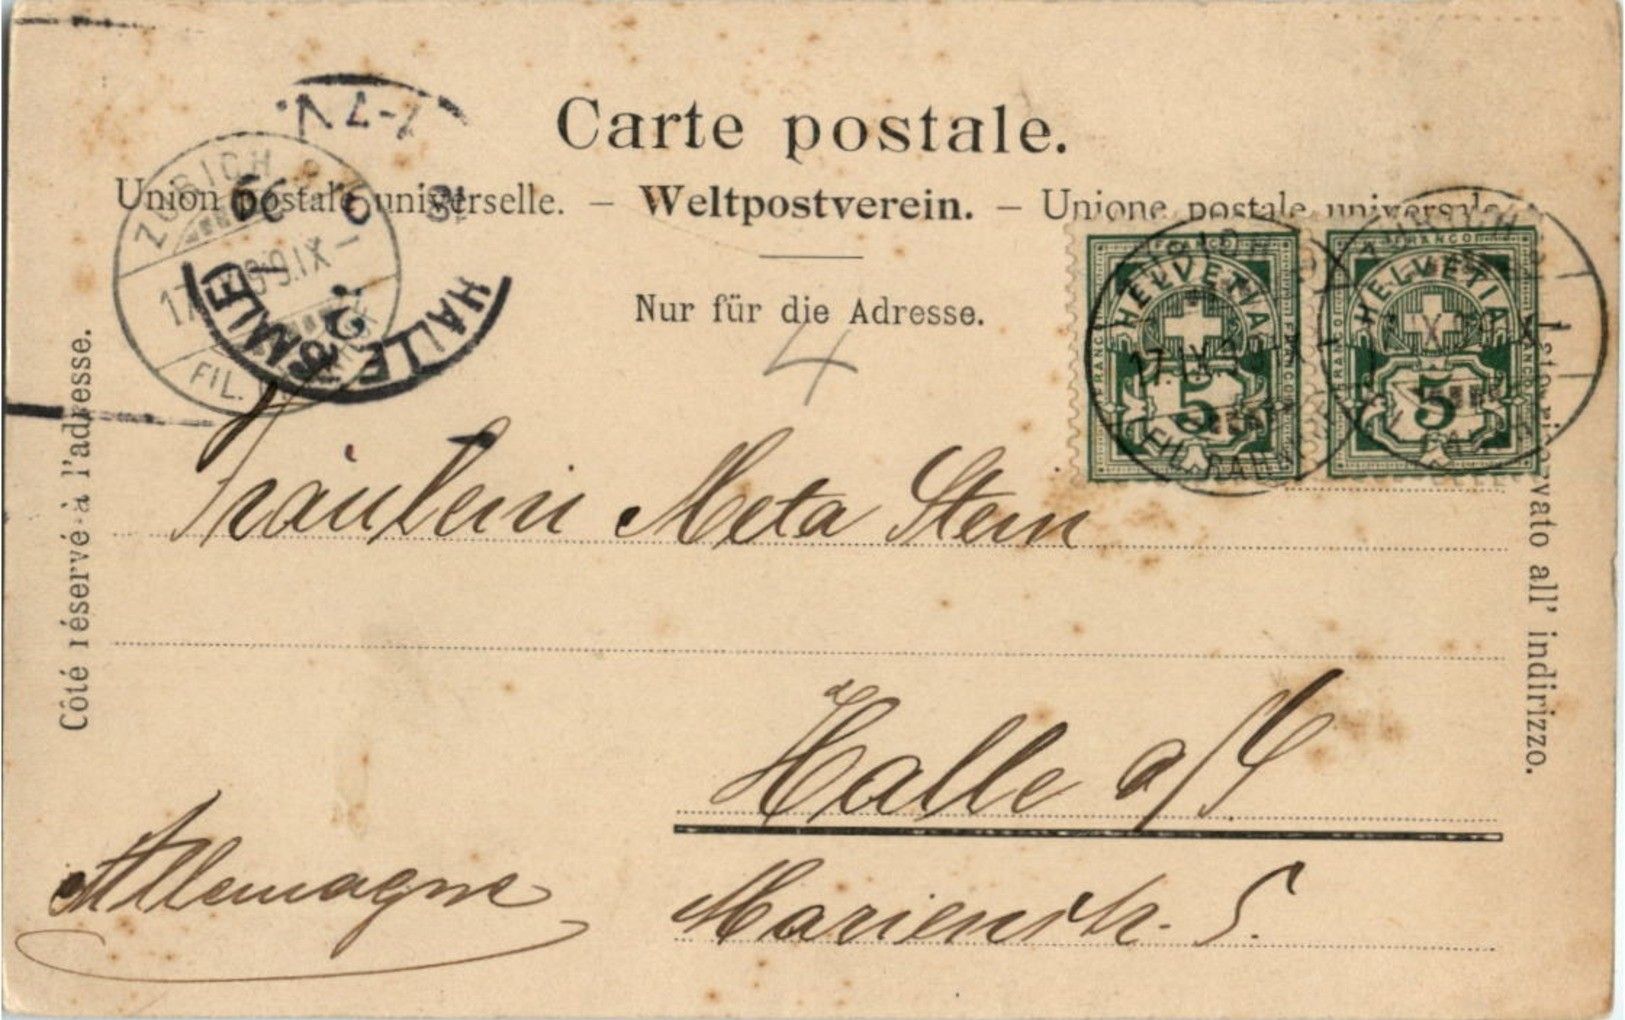 Carte postale.
Union postale universelle. – Weltpostverein. – Unione postale universale
Nur für die Adresse.
4
Côté réservé à l'adresse.
riservato all' indirizzo.
ZÜRICH
17. IX
FIL.
HALLE
99
1-7 V.
FRANCO
HELVETIA
5
FRANCO
HELVETIA
5
Fräulein Meta Stein
Halle a/S.
Marienstr. 5.
Allemagne